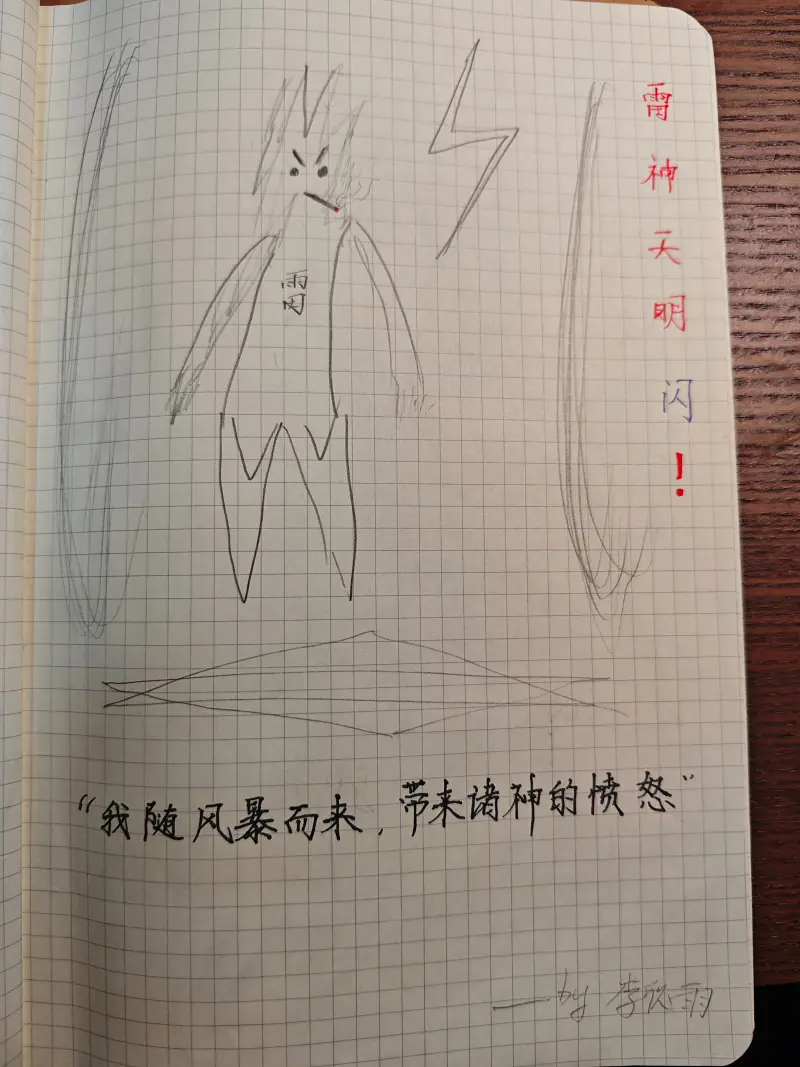 雷神天明闪！
“我随风暴而来，带来诸神的愤怒”
——by 李欣雨